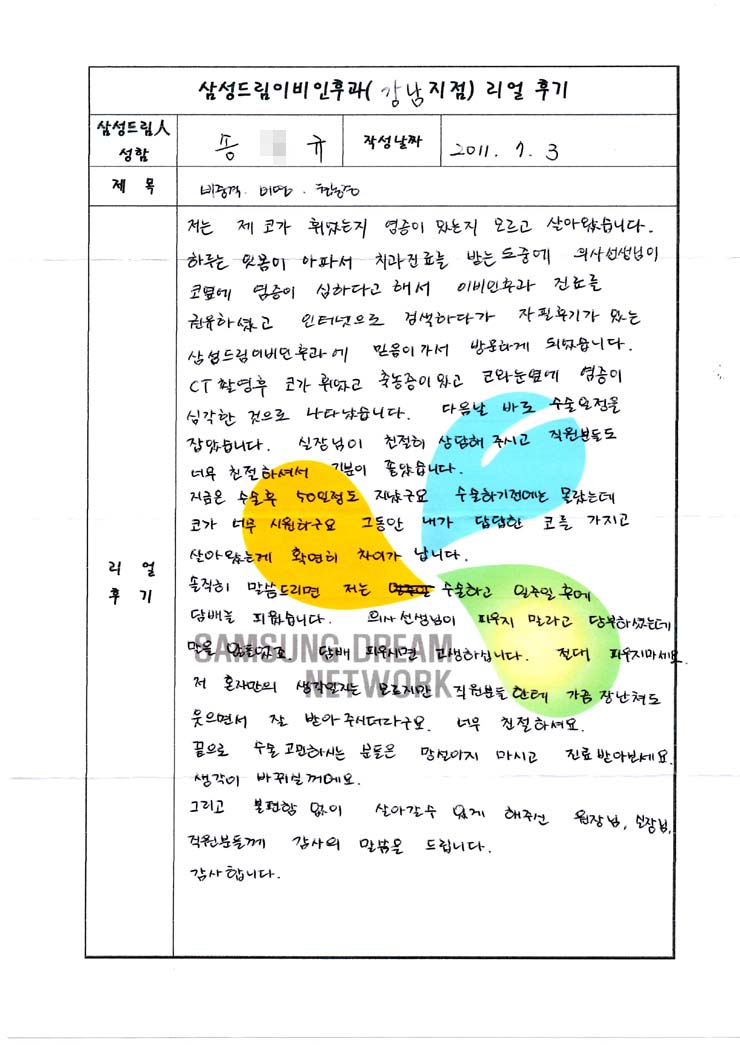 삼성드림이비인후과(강남지점) 리얼 후기
삼성드림人 성함
송 규
작성날짜
2011. 9. 3
제 목
비중격. 비염.
리 얼 후 기
저는 제 코가 휘었는지 염증이 있는지 모르고 살아왔습니다.
하루는 잇몸이 아파서 치과진료를 받는 도중에 의사선생님이
코옆에 염증이 심하다고 해서 이비인후과 진료를
권유하셨고 인터넷으로 검색하다가 자필후기가 있는
삼성드림이비인후과에 믿음이가서 방문하게 되었습니다.
CT 촬영후 코가 휘었고 축농증이있고 코와눈옆에 염증이
심각한 것으로 나타났습니다. 다음날 바로 수술일정을
잡았습니다. 실장님이 친절히 상담해 주시고 직원분들도
너무 친절하셔서 기분이 좋았습니다.
지금은 수술후 50일정도 지났구요 수술하기전에는 몰랐는데
코가 너무 시원하구요 그동안 내가 답답한 코를 가지고
살아왔는게 확연히 차이가 납니다.
솔직히 말씀드리면 저는 수술하고 일주일 후에
담배를 피웠습니다. 의사선생님이 피우지 말라고 당부하셨는데
말을 안들었죠. 담배 피우시면 고생하십니다. 절대 피우지마세요.
저 혼자만의 생각일지는 모르지만 직원분들한테 가끔 장난쳐도
웃으면서 잘 받아주시더라구요. 너무 친절하셔요.
끝으로 수술 고민하시는 분들은 망설이지 마시고 진료받아보세요.
생각이 바뀌실꺼예요.
그리고 불편함 없이 살아갈수 있게 해주신 원장님, 실장님,
직원분들께 감사의 말씀을 드립니다.
감사합니다.
SAMSUNG DREAM
NETWORK